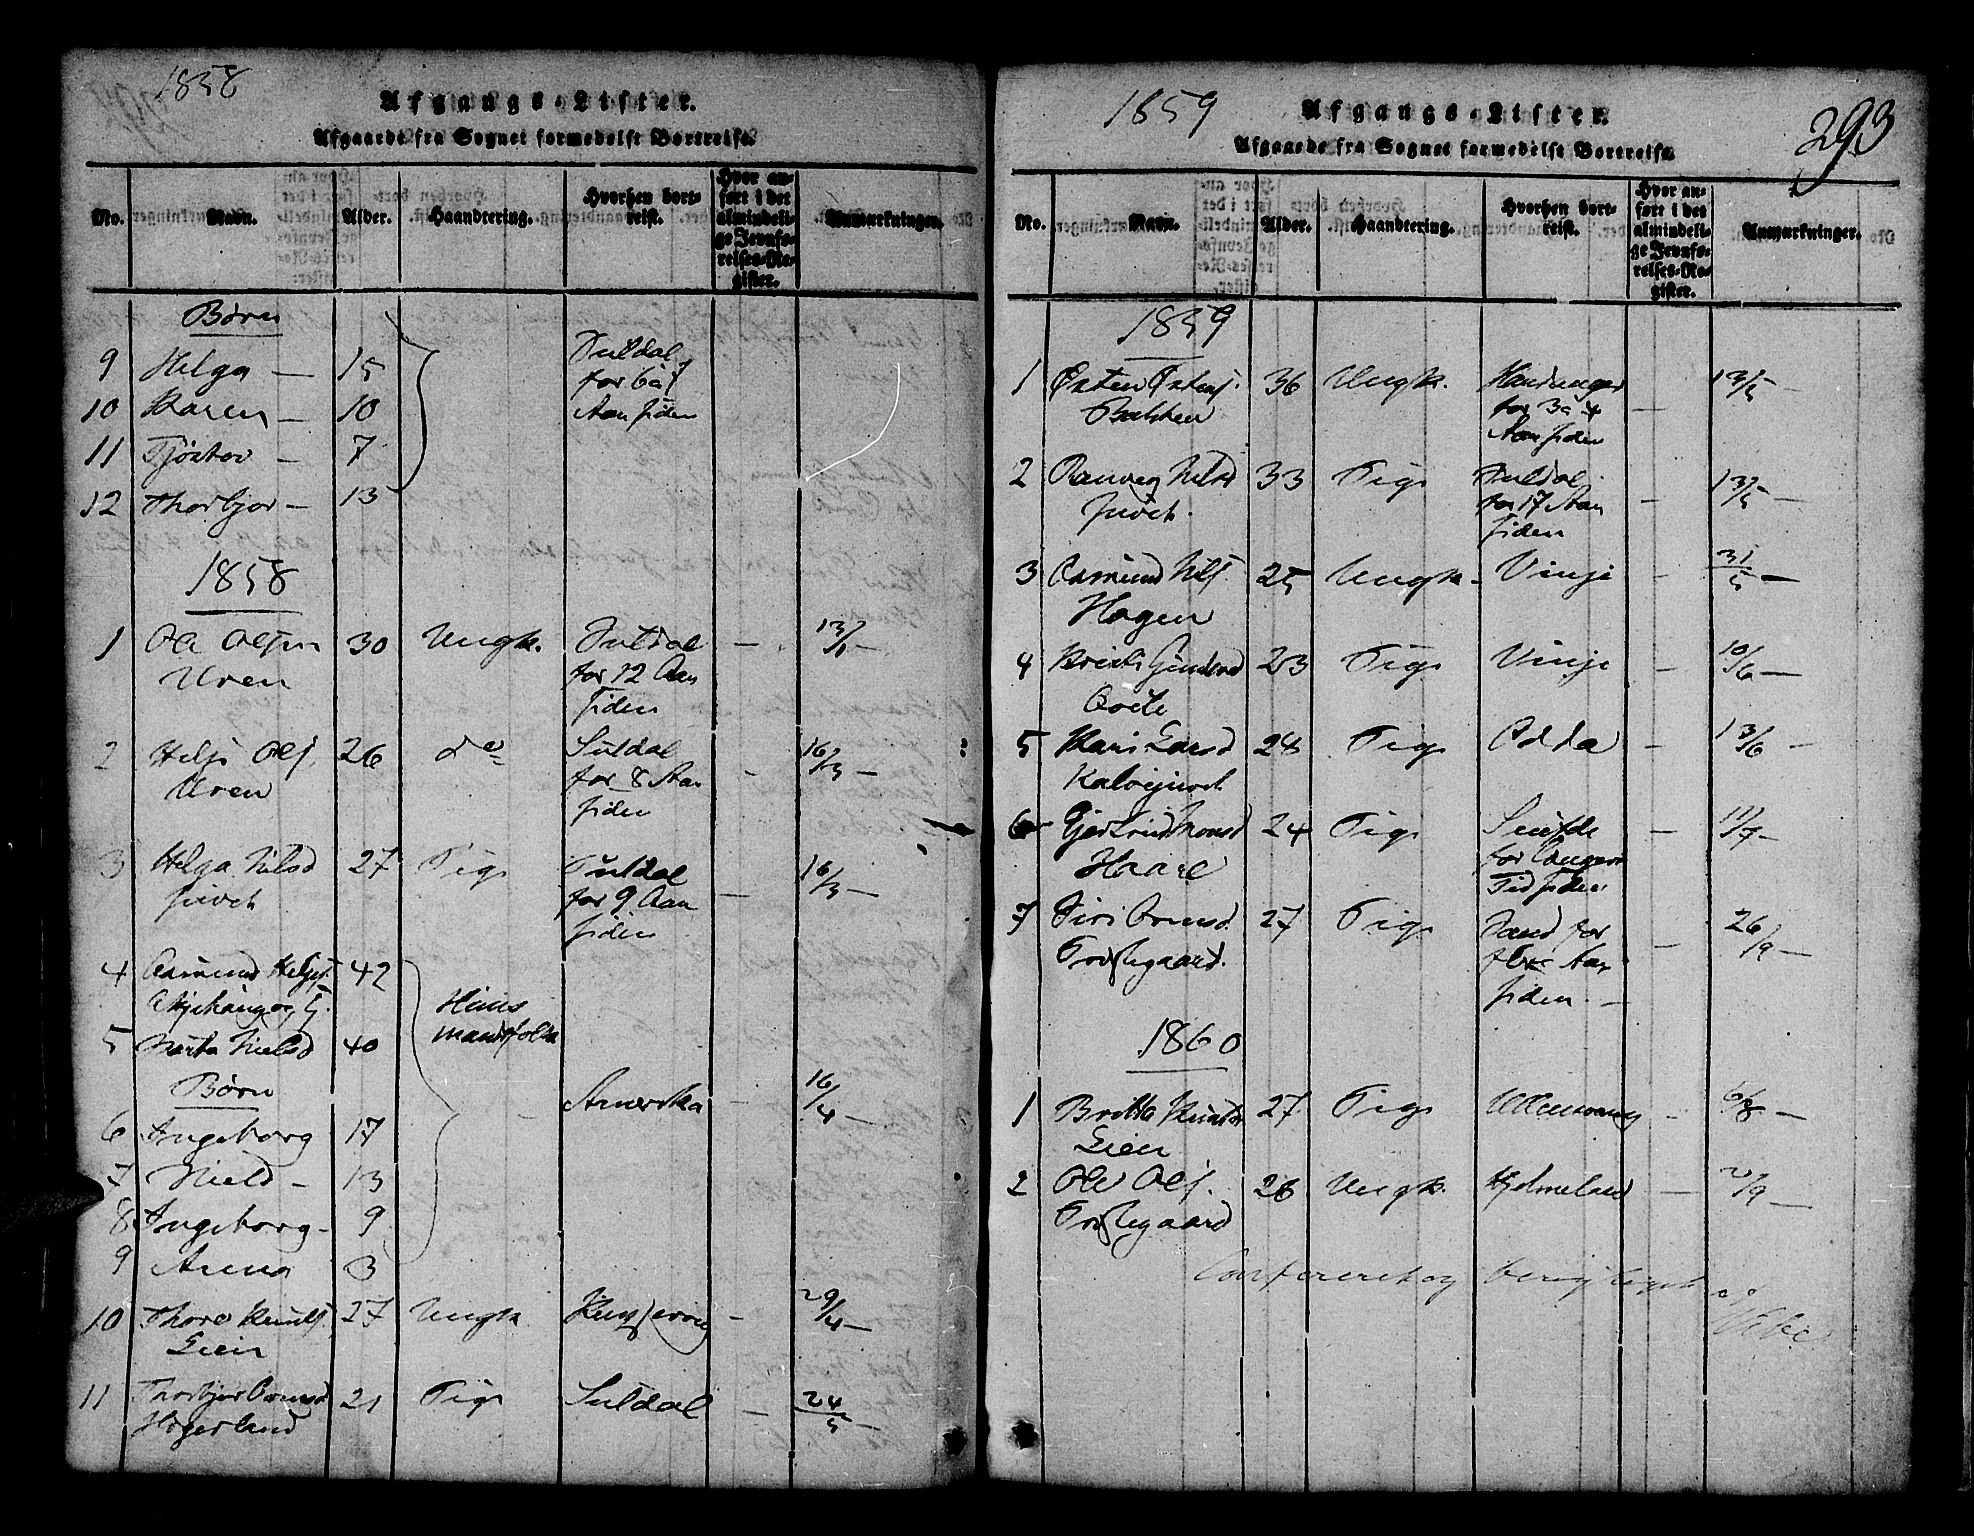 1858
Afgangs-Lister.
Afgaarde fra Sognet formedelst Bortreise.
No. Navn. Alder. Haandtering. Hvorhen bortreist. Hvor anført i det almindelige Jevnførelses-Register. Anmærkninger.
Børn
9 Helga — 15 Suldal
for 6 a 7
Aar siden
10 Karen — 10
11 Tjöstov — 7
12 Thorbjor — 13
1858
1 Ole Olsen 30 Ungk. Suldal — 13/1 —
Uren for 12 Aar
siden
2 Helje Ols. 26 do Suldal — 16/3 —
Uren for 8 Aar
siden
3 Helga Nilsd 27 Pige Suldal — 16/3 —
Juvet for 9 Aar
siden
4 Aasmund Heljes. 42 Huus
mandsfolk
og
5 Marta Nielsd 40
Børn
Amerika — 16/4 —
6 Ingeborg 17
7 Nield — 13
8 Ingeborg — 9
9 Anna 3
10 Thore Knuts. 27 Ungk. — 29/4 —
Lien
11 Thorbjor Ormsd 21 Pige Suldal — 24/5 —
Hogerland
1859
Afgangs-Lister.
Afgaarde fra Sognet formedelst Bortreise.
293
No. Navn. Alder. Haandtering. Hvorhen bortreist. Hvor anført i det almindelige Jevnførelses-Register. Anmærkninger.
1859
1 Østen Østens. 36 Ungk. Hardanger — 13/5 —
Bakken for 3 a 4
Aar siden
2 Ranveg Nilsd 33 Pige Suldal — 13/5 —
Juvet. for 17 Aar
siden
3 Aasmund Nils. 25 Ungk. Vinje — 31/5 —
Hagen
4 23 Pige Vinje — 10/6 —
5 Kari Larsd 24 Pige Odda — 13/6 —
6 Gjertrud Monsd 24 Pige — 11/7 —
Haare for længere
Tid siden
7 Siri Ormsd. 27 Pige Sand for — 26/9 —
Prestegaard. flere Aar
siden. —
1860
1 Britta Knutsd 27 Pige Ullensvang — 6/8 —
Lien
2 Ole Ols. 26 Ungk. Hjelmeland — 2/9 —
Prestegaard
Confereret og